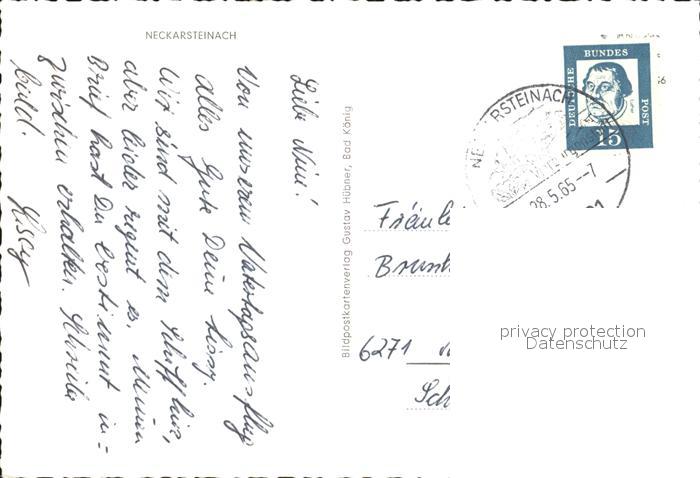 NECKARSTEINACH
Liebe Nini!
Von unserem Vatertagsausflug
alles Gute Deine Lissy.
Wir sind mit dem Schiff hier,
aber leider regnet es. Meinen
Brief hast Du bestimmt in-
zwischen erhalten. Schreibe
bald.
Lissy
Bildpostkartenverlag Gustav Hübner, Bad König
DEUTSCHE BUNDES POST
Luther
15
RSTEINACH
28.5.65--7
Fräule
6271
Sch
privacy protection
Datenschutz